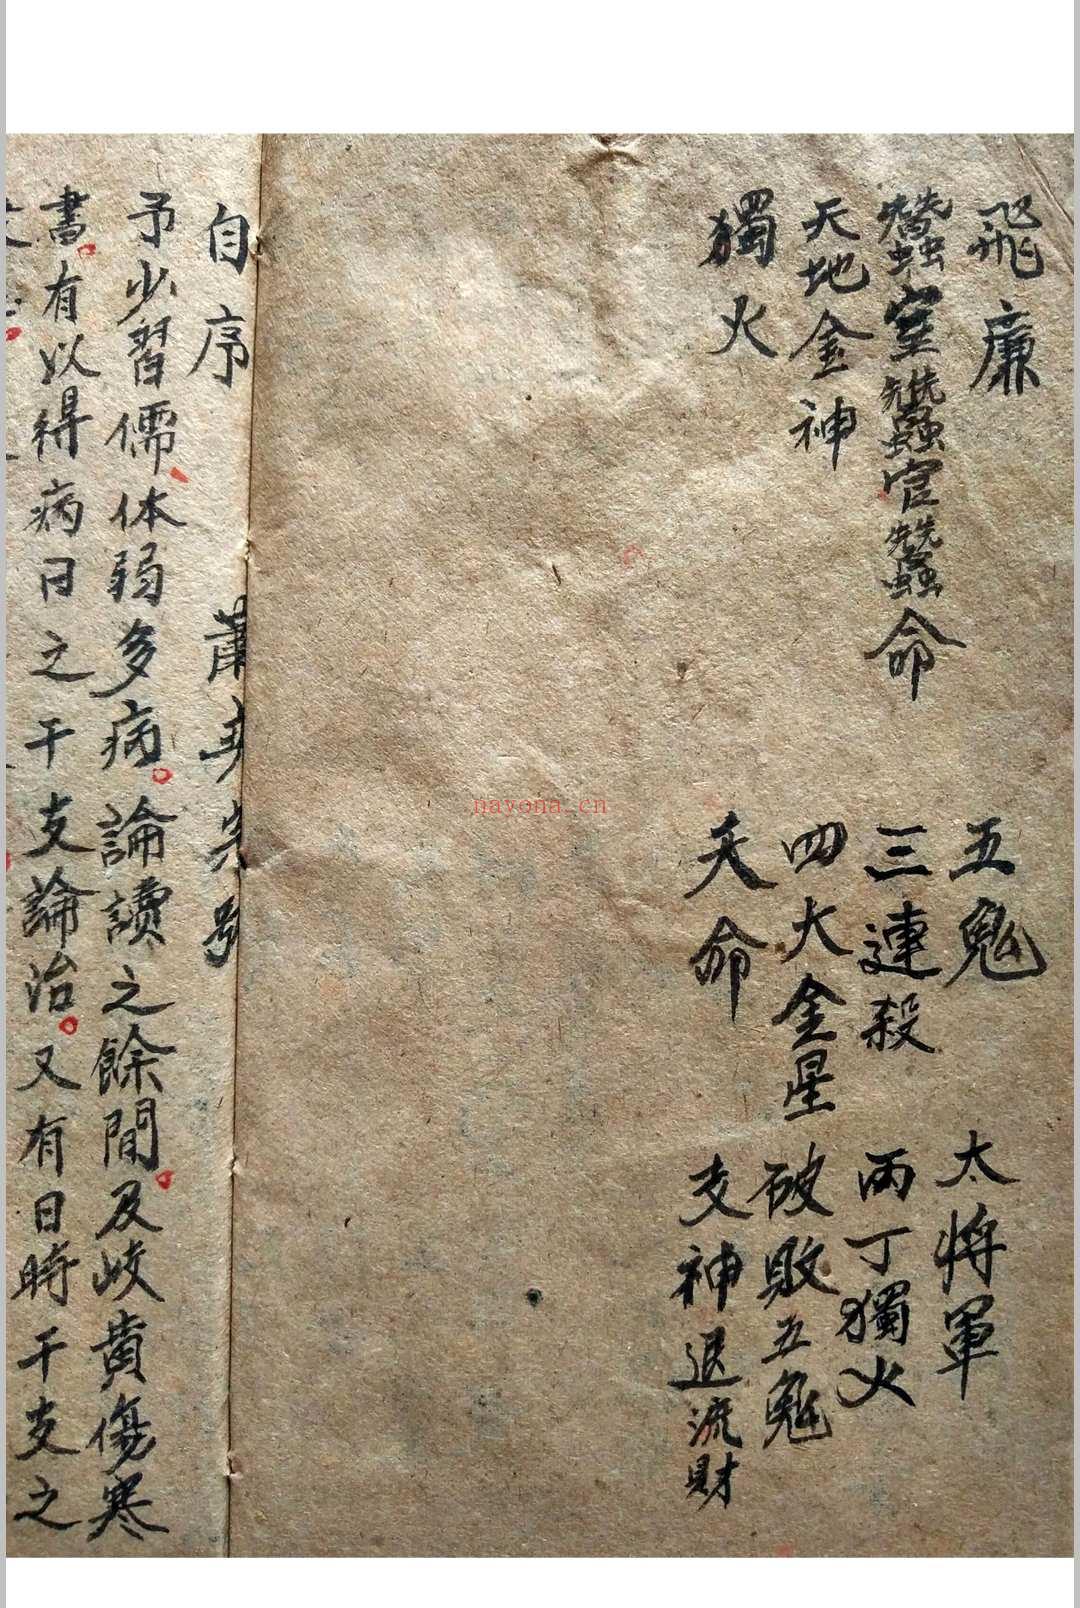 飛廉
五鬼
太將軍
蠶室蠶官蠶命
三連殺
丙丁獨火
天地金神
四大金星
破敗五鬼
獨火
天命
支神退流財
nayona.cn
自序
予少習儒、体弱多病。論讀之餘間。及岐黄傷寒
書。有以得病日之干支論治。又有日時干支之